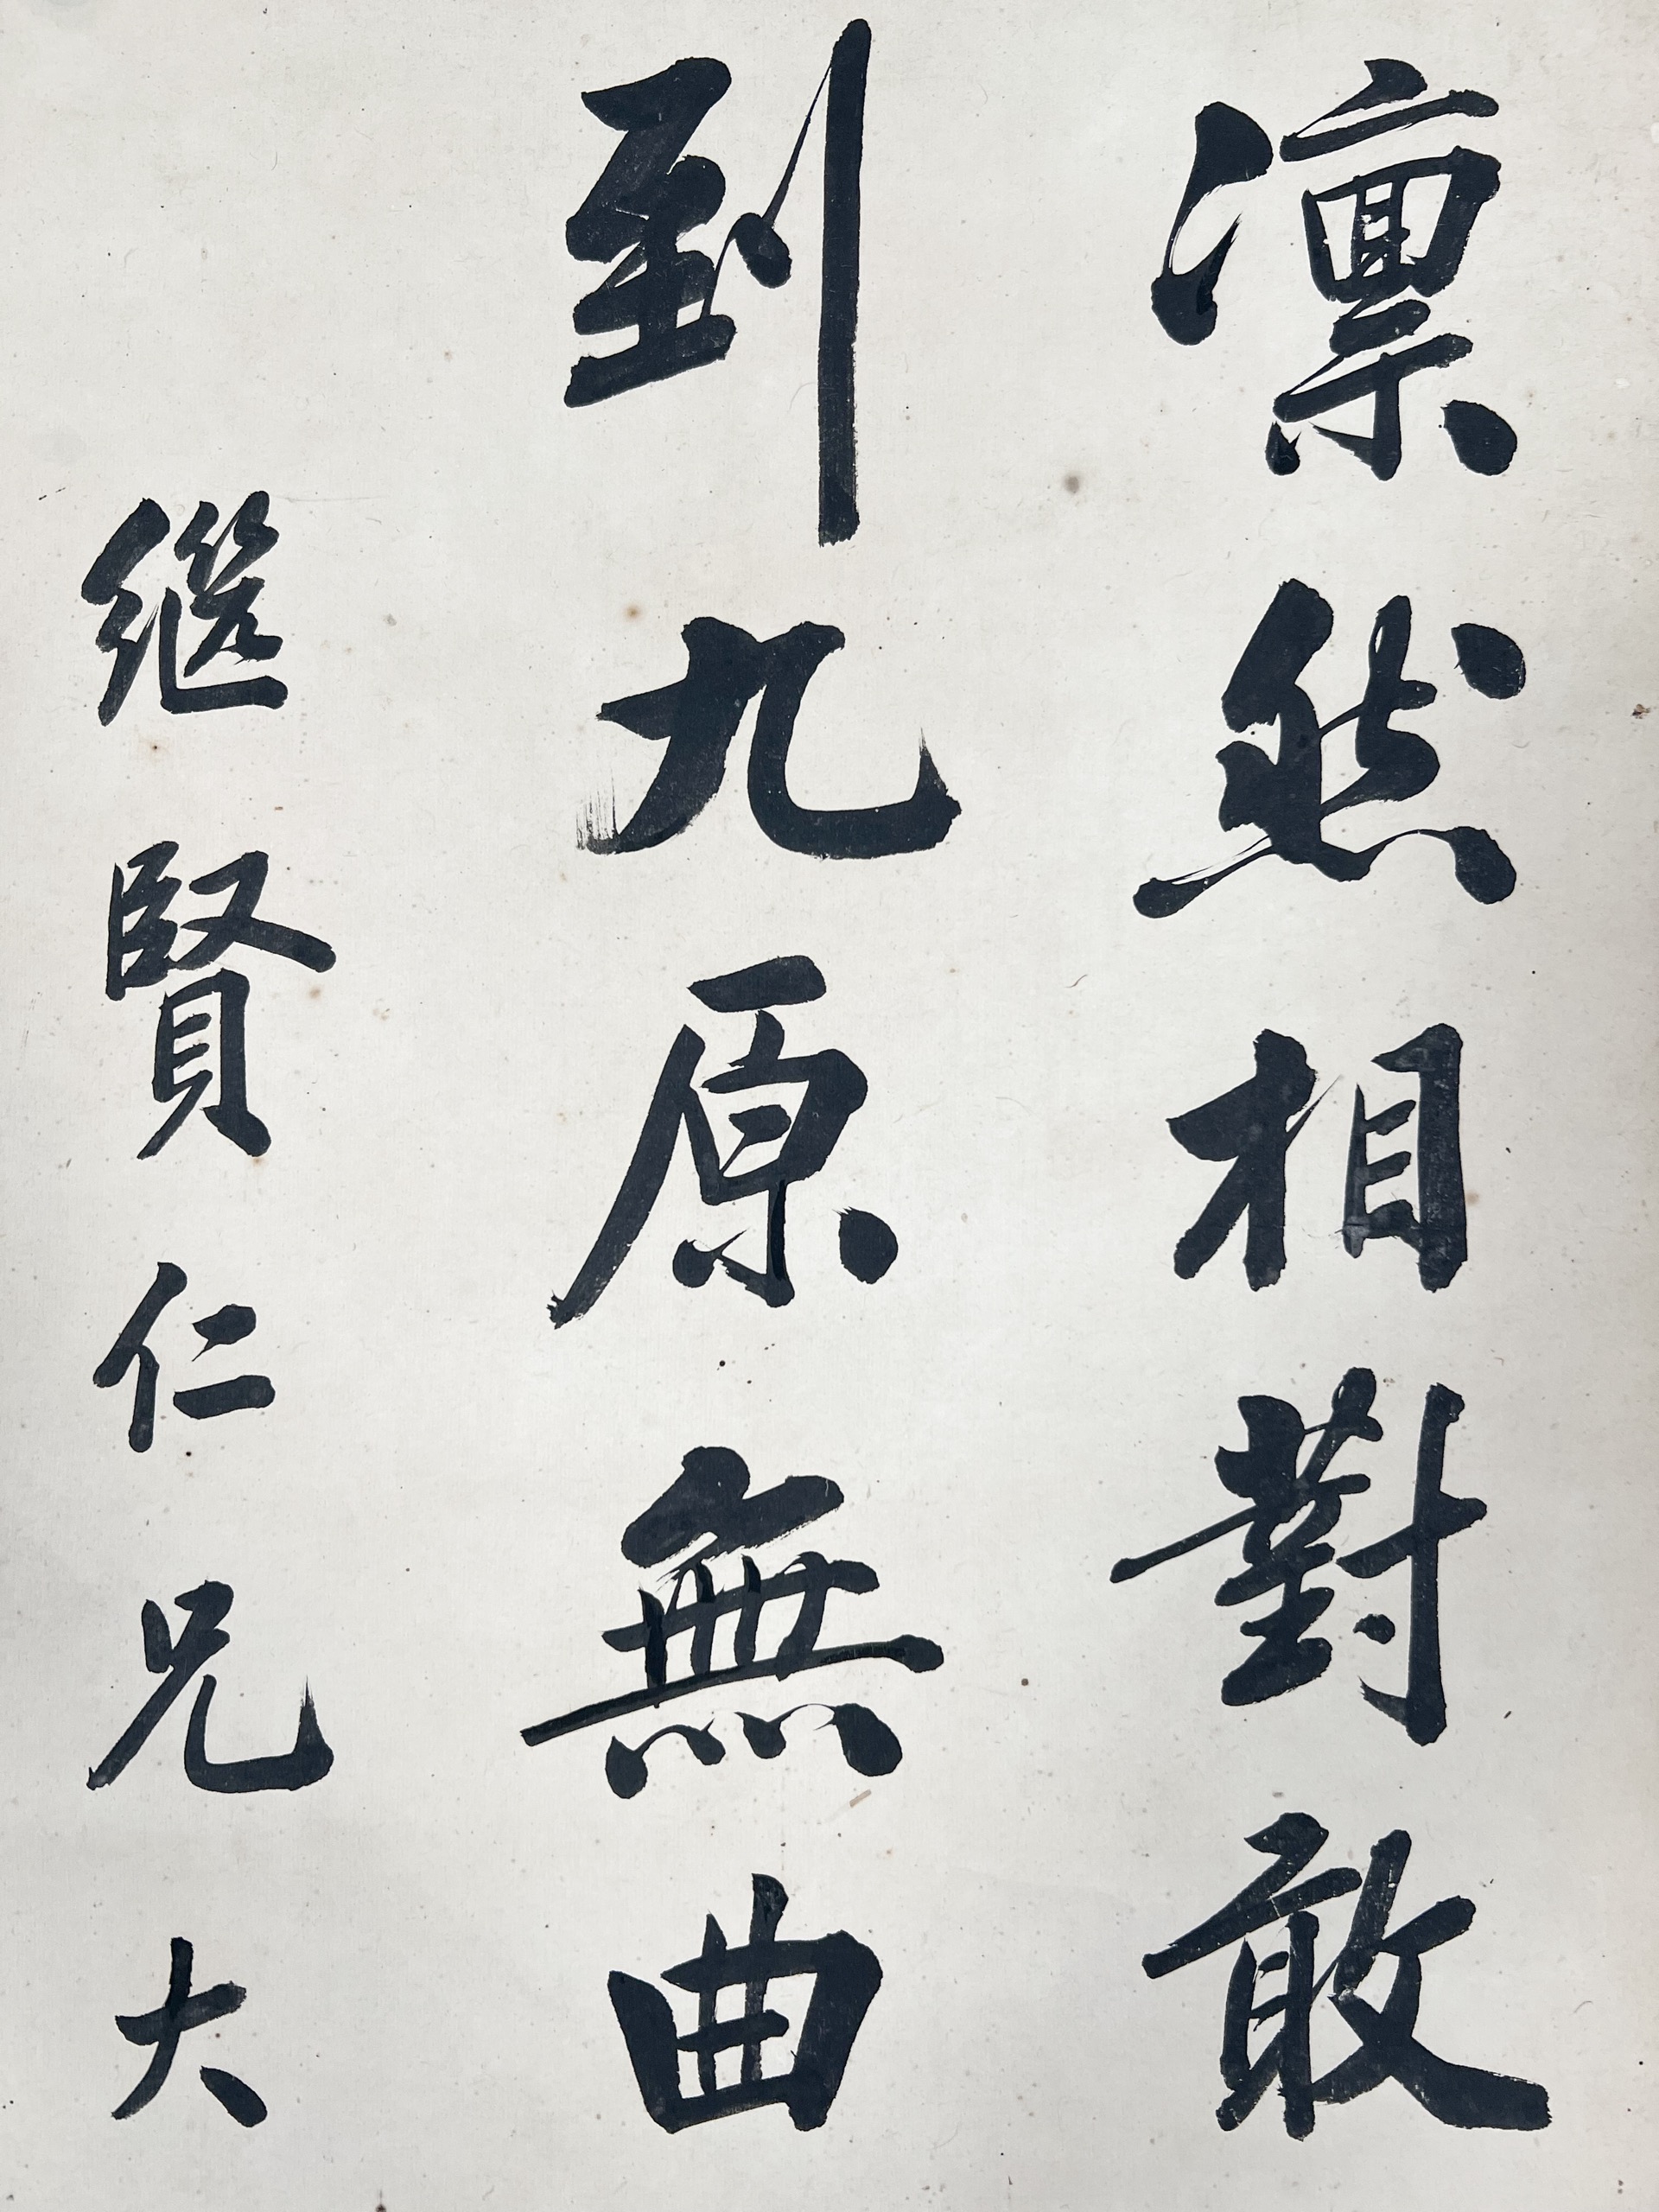 凛然相對敢
到九原無曲
継賢仁兄大